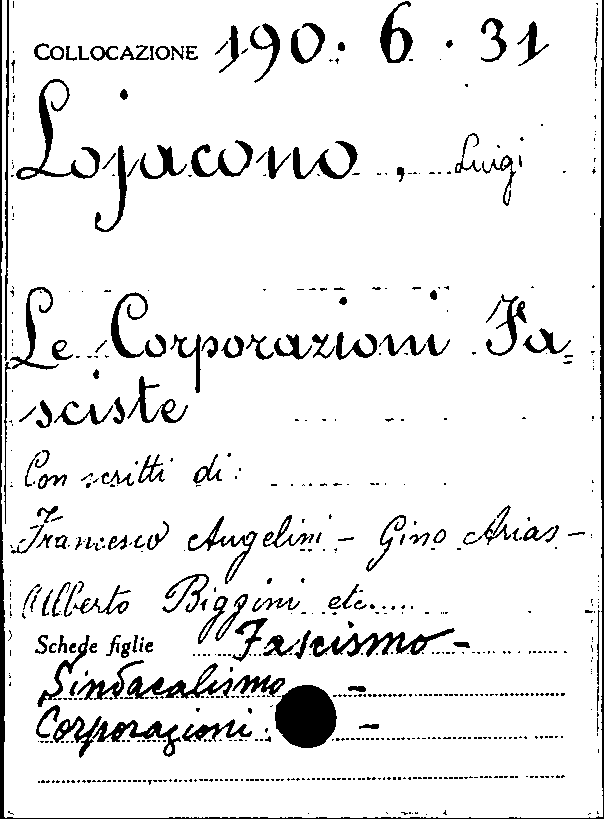 COLLOCAZIONE 190. 6. 31
Lojacono, Luigi
Le Corporazioni Fa=
sciste
Con scritti di:
Francesco Angelini - Gino Arias -
Alberto Biggini etc.....
Schede figlie Fascismo -
Sindacalismo -
Corporazioni. -